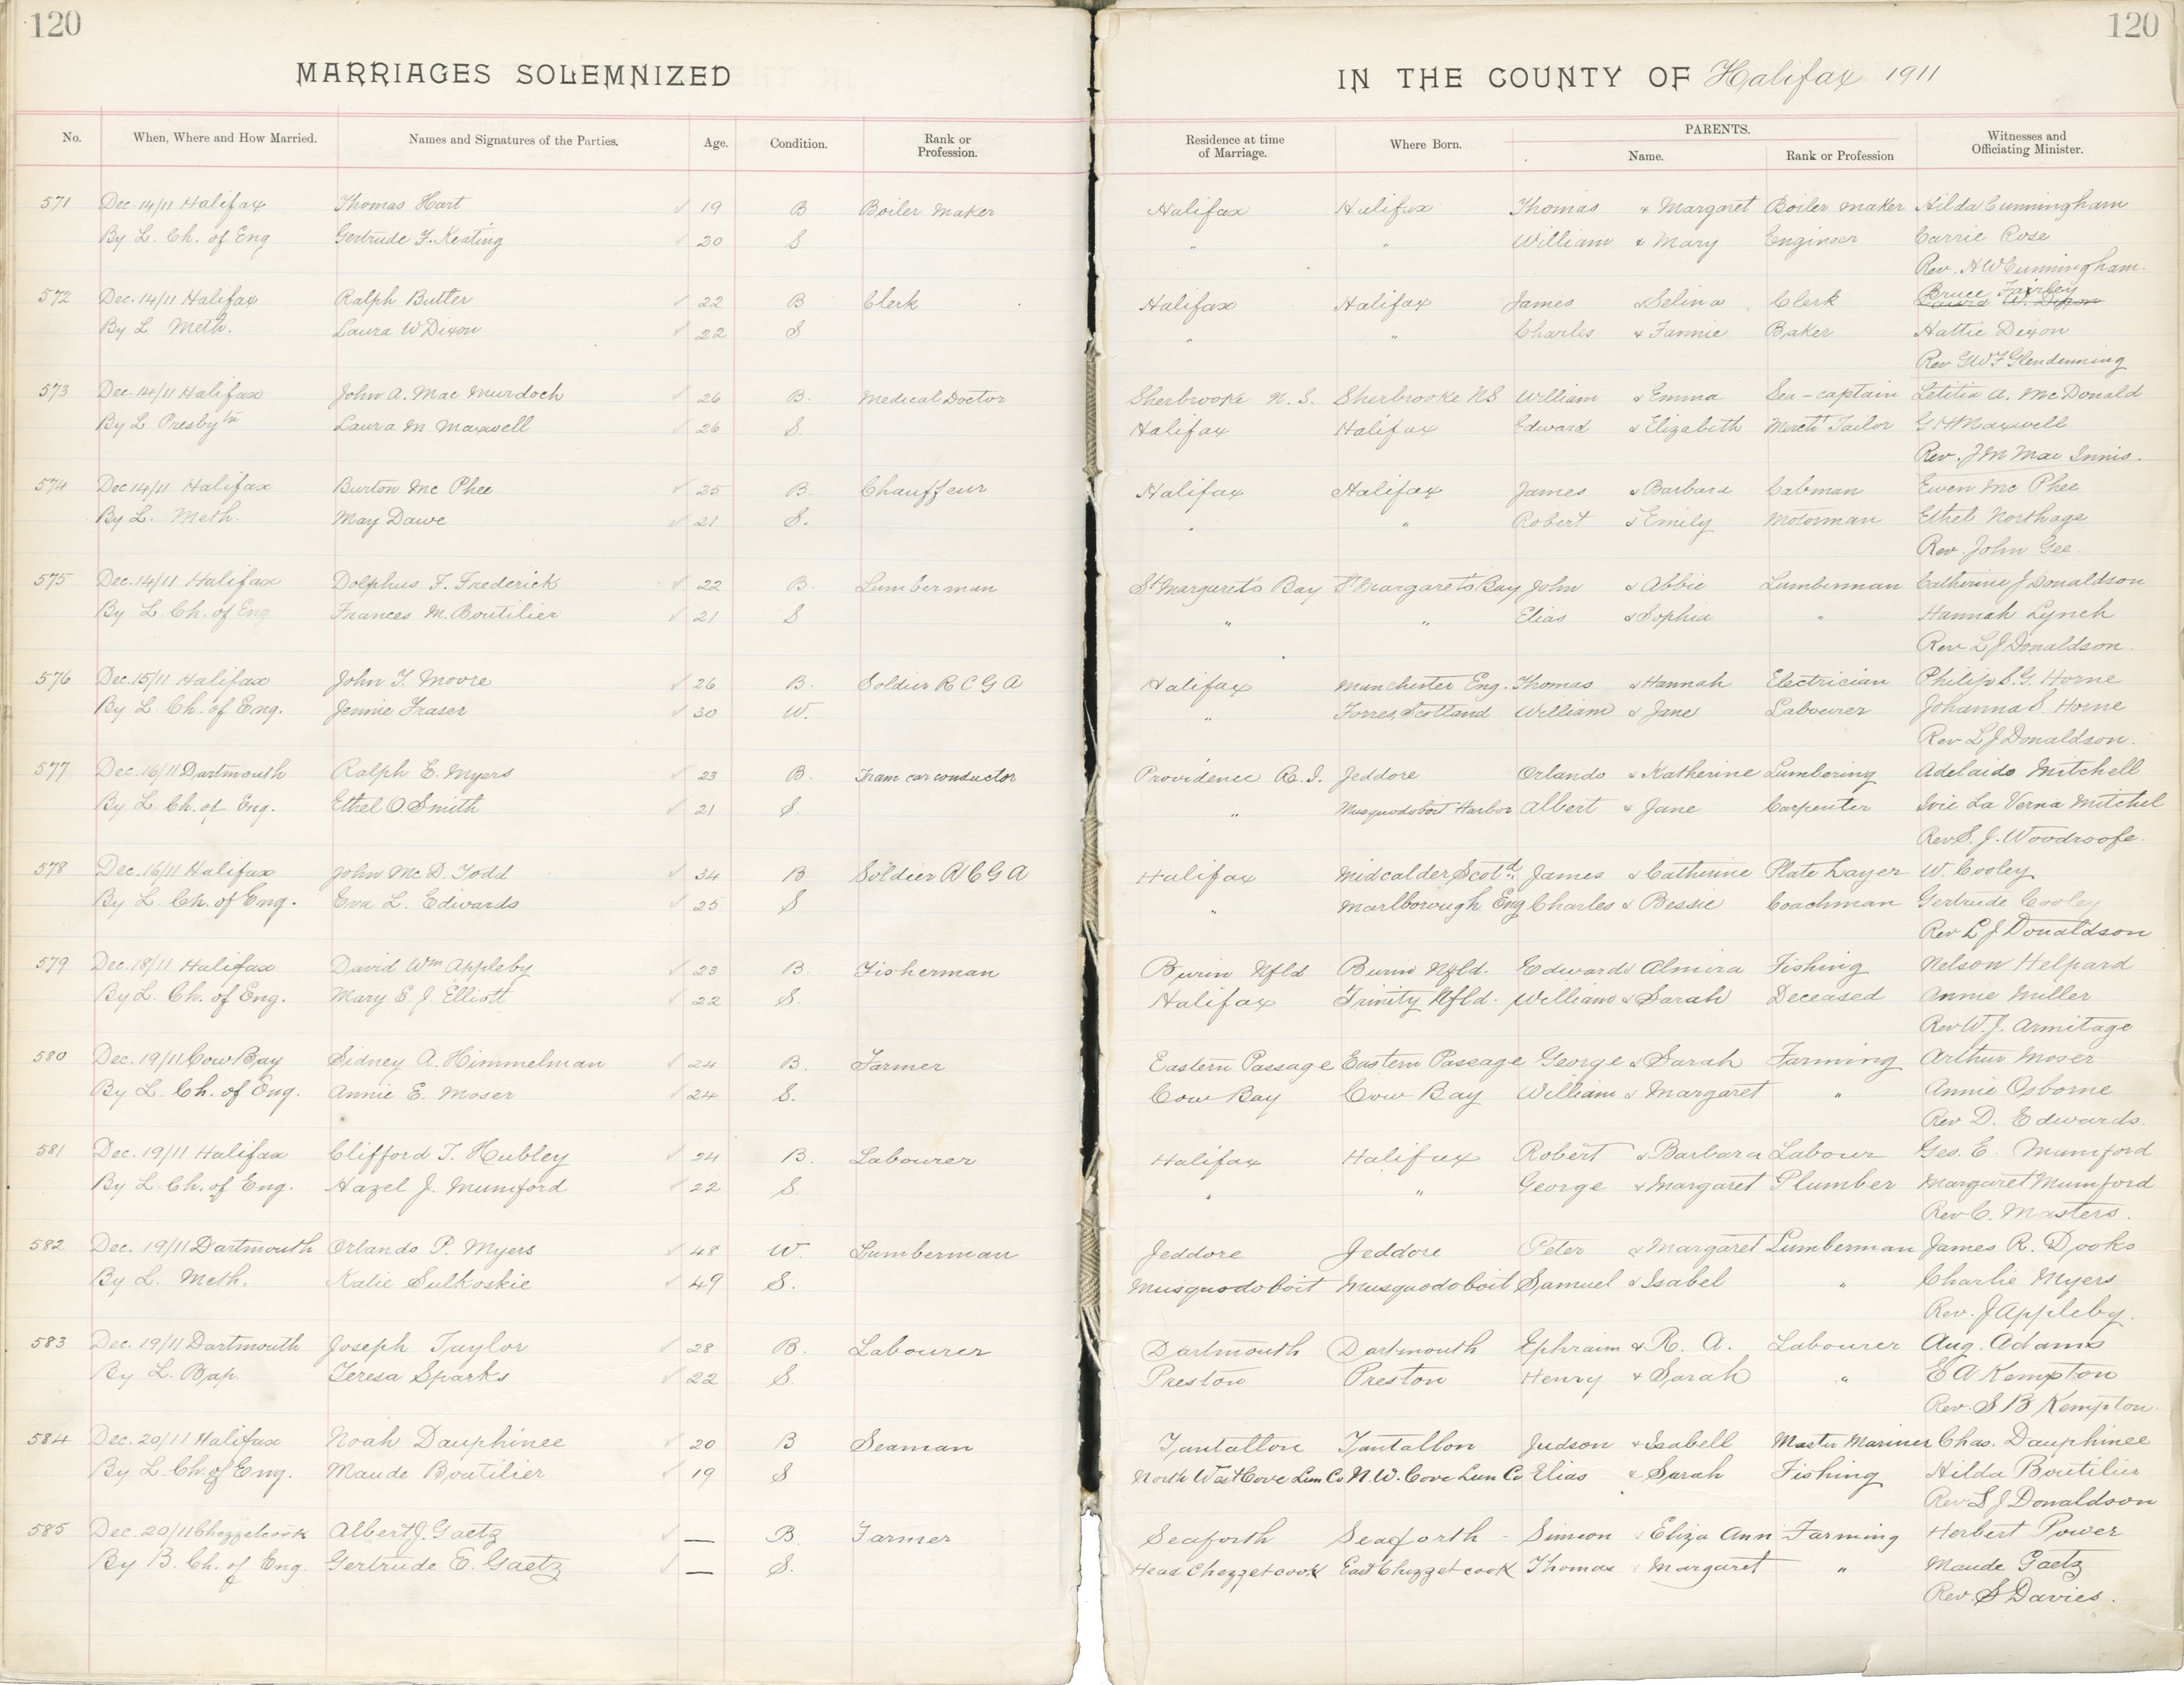 120 120
MARRIAGES SOLEMNIZED IN THE COUNTY OF Halifax 1911
No. When, Where and How Married. Names and Signatures of the Parties. Age. Condition. Rank or Profession. Residence at time of Marriage. Where Born. PARENTS. Name. Rank or Profession Witnesses and Officiating Minister.
571 Dec. 14/11 Halifax Thomas Hart 19 B Boiler Maker Halifax Halifax Thomas & Margaret Boiler maker Hilda Cunningham
By L. Ch. of Eng Gertrude F. Keating 20 S " " William & Mary Engineer Carrie Rose
Rev. H W Cunningham.
572 Dec. 14/11 Halifax Ralph Butler 22 B Clerk Halifax Halifax James & Selina Clerk Bruce Fairley
By L Meth. Laura W Dixon 22 S " " Charles & Fannie Baker Hattie Dixon
Rev GWF Glendenning
573 Dec. 14/11 Halifax John A. Mac Murdoch 26 B. Medical Doctor Sherbrooke N. S. Sherbrooke NS William & Emma Sea-captain Letitia A. McDonald
By L Presbytn Laura M Maxwell 26 S. Halifax Halifax Edward & Elizabeth Mercht Tailor G H Maxwell
Rev. J M Mac Innis.
574 Dec 14/11 Halifax Burton Mc Phee 25 B. Chauffeur Halifax Halifax James & Barbara Cabman Ewen Mc Phee
By L. Meth. May Dawe 21 S. " " Robert & Emily Motorman Ethel Northage
Rev. John Gee.
575 Dec. 14/11 Halifax Dolphus F. Frederick 22 B. Lumberman St Margaret's Bay St Margaret's Bay John & Abbie Lumberman Catherine J Donaldson
By L. Ch. of Eng Frances M. Boutilier 21 S " " Elias & Sophia " Hannah Lynch
Rev L J Donaldson.
576 Dec. 15/11 Halifax John T. Moore 26 B. Soldier R C G A Halifax Manchester Eng. Thomas & Hannah Electrician Philip S. G. Horne
By L. Ch. of Eng. Jennie Fraser 30 W. " Forres, Scotland William & Jane Labourer Johanna S. Horne
Rev L J Donaldson.
577 Dec. 16/11 Dartmouth Ralph E. Myers 23 B. Tram car conductor Providence R. I. Jeddore Orlando & Katherine Lumbering Adelaide Mitchell
By L. Ch. of Eng. Ethel O Smith 21 S. " Musquodoboit Harbor Albert & Jane Carpenter La Verna Mitchel
Rev S. J. Woodroofe.
578 Dec. 16/11 Halifax John Mc D. Todd 34 B Soldier R C G A Halifax Midcalder Scotd. James & Catherine Plate Layer W. Cooley
By L. Ch. of Eng. Eva L. Edwards 25 S " Marlborough Eng Charles & Bessie Coachman Gertrude Cooley
Rev L J Donaldson
579 Dec. 18/11 Halifax David Wm Appleby 23 B. Fisherman Burin Nfld Burin Nfld. Edward & Almira Fishing Nelson Helpard
By L. Ch. of Eng. Mary E. J. Elliott 22 S. Halifax Trinity Nfld. William & Sarah Deceased Annie Miller
Rev W. J. Armitage
580 Dec. 19/11 Cow Bay Sidney A. Himmelman 24 B. Farmer Eastern Passage Eastern Passage George & Sarah Farming Arthur Moser
By L. Ch. of Eng. Annie E. Moser 24 S. Cow Bay Cow Bay William & Margaret " Annie Osborne
Rev D. Edwards.
581 Dec. 19/11 Halifax Clifford T. Hubley 24 B. Labourer Halifax Halifax Robert & Barbara Labour Geo. E. Mumford
By L. Ch. of Eng. Hazel J. Mumford 22 S. " " George & Margaret Plumber Margaret Mumford
Rev C. Masters.
582 Dec. 19/11 Dartmouth Orlando P. Myers 48 W. Lumberman Jeddore Jeddore Peter & Margaret Lumberman James R. Dooks
By L. Meth. Katie Sulkoskie 49 S. Musquodoboit Musquodoboit Samuel & Isabel " Charlie Myers
Rev. J Appleby.
583 Dec. 19/11 Dartmouth Joseph Taylor 28 B. Labourer Dartmouth Dartmouth Ephraim & R. A. Labourer Aug. Adams
By L. Bap. Teresa Sparks 22 S. Preston Preston Henry & Sarah " E A Kempton
Rev. S B Kempton.
584 Dec. 20/11 Halifax Noah Dauphinee 20 B Seaman Tantallon Tantallon Judson & Isabell Master Mariner Chas. Dauphinee
By L. Ch. of Eng. Maude Boutilier 19 S North West Cove Lun Co N. W. Cove Lun Co Elias & Sarah Fishing Hilda Boutilier
Rev L J Donaldson
585 Dec. 20/11 Chezzetcook Albert J. Gaetz — B. Farmer Seaforth Seaforth Simeon & Eliza Ann Farming Herbert Power
By B. Ch. of Eng. Gertrude E. Gaetz — S. Head Chezzetcook East Chezzetcook Thomas & Margaret " Maude Gaetz
Rev. S Davies.